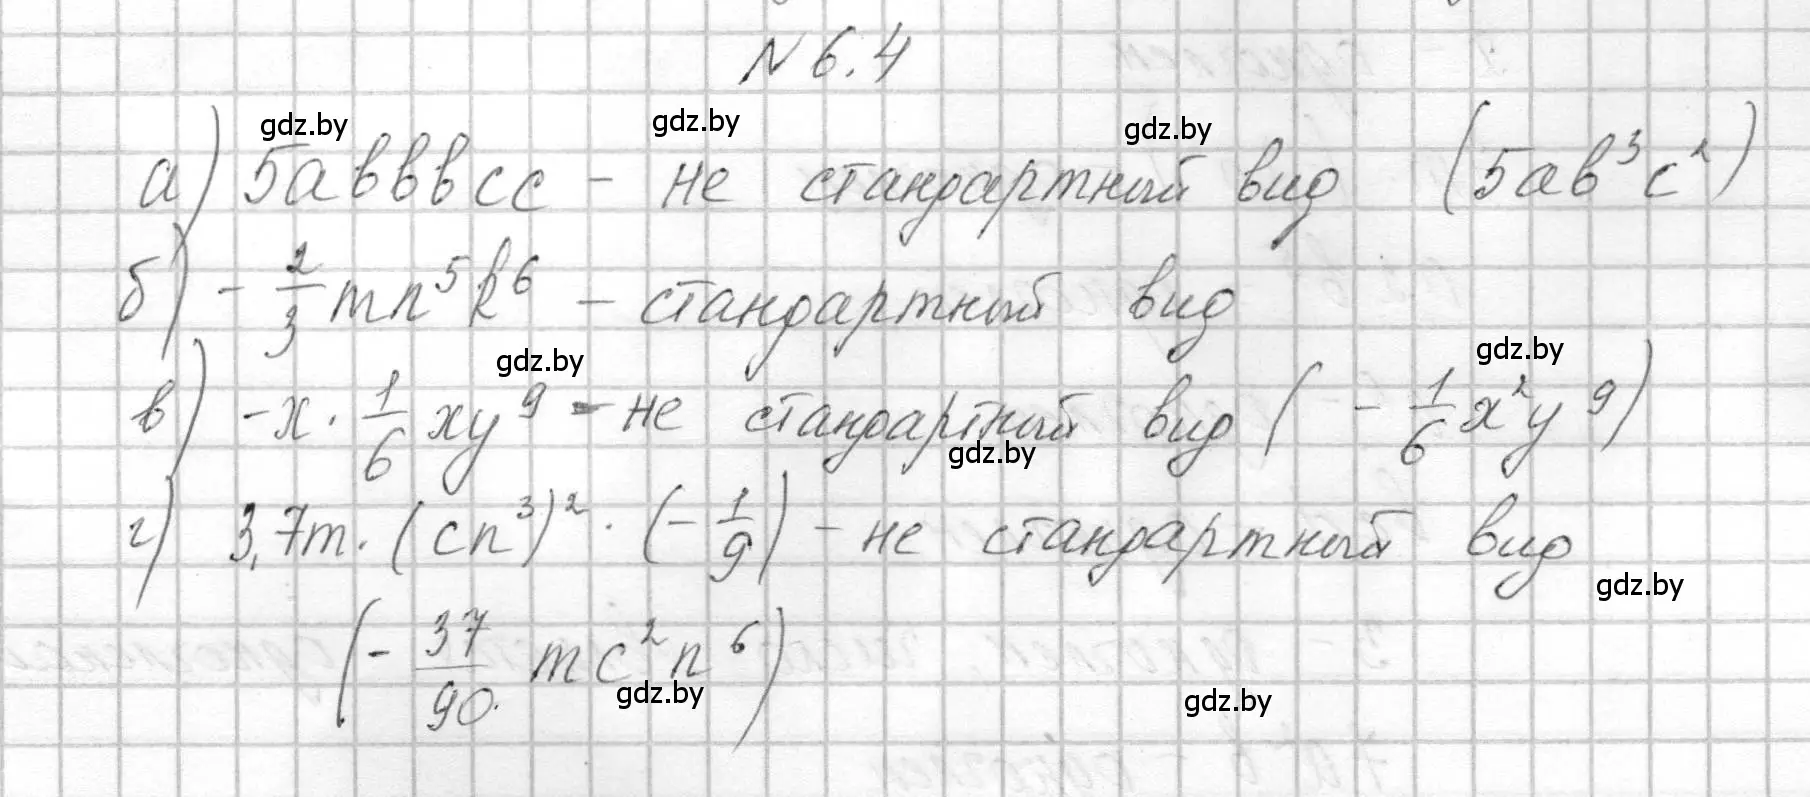 N 6.4
gdz.by gdz.by gdz.by
а) 5abbbcc - не стандартный вид (5ab³c²)
б) - 2/3 mn⁵k⁶ - стандартный вид
gdz.by gdz.by
в) -x · 1/6 xy⁹ - не стандартный вид (- 1/6 x²y⁹)
gdz.by
г) 3,7m · (cn³)² · (- 1/9) - не стандартный вид
gdz.by
(- 37/90 mc²n⁶)
gdz.by gdz.by